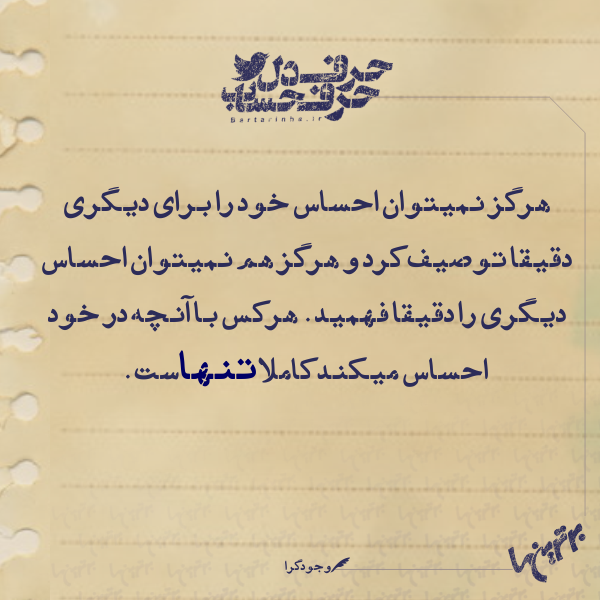 حرف دل
حرف حساب
Bartarinha.ir
هرگز نمیتوان احساس خود را برای دیگری
دقیقا توصیف کرد و هرگز هم نمیتوان احساس
دیگری را دقیقا فهمید. هرکس با آنچه در خود
احساس میکند کاملا تنهاست.
وجودگرا
برترین‌ها